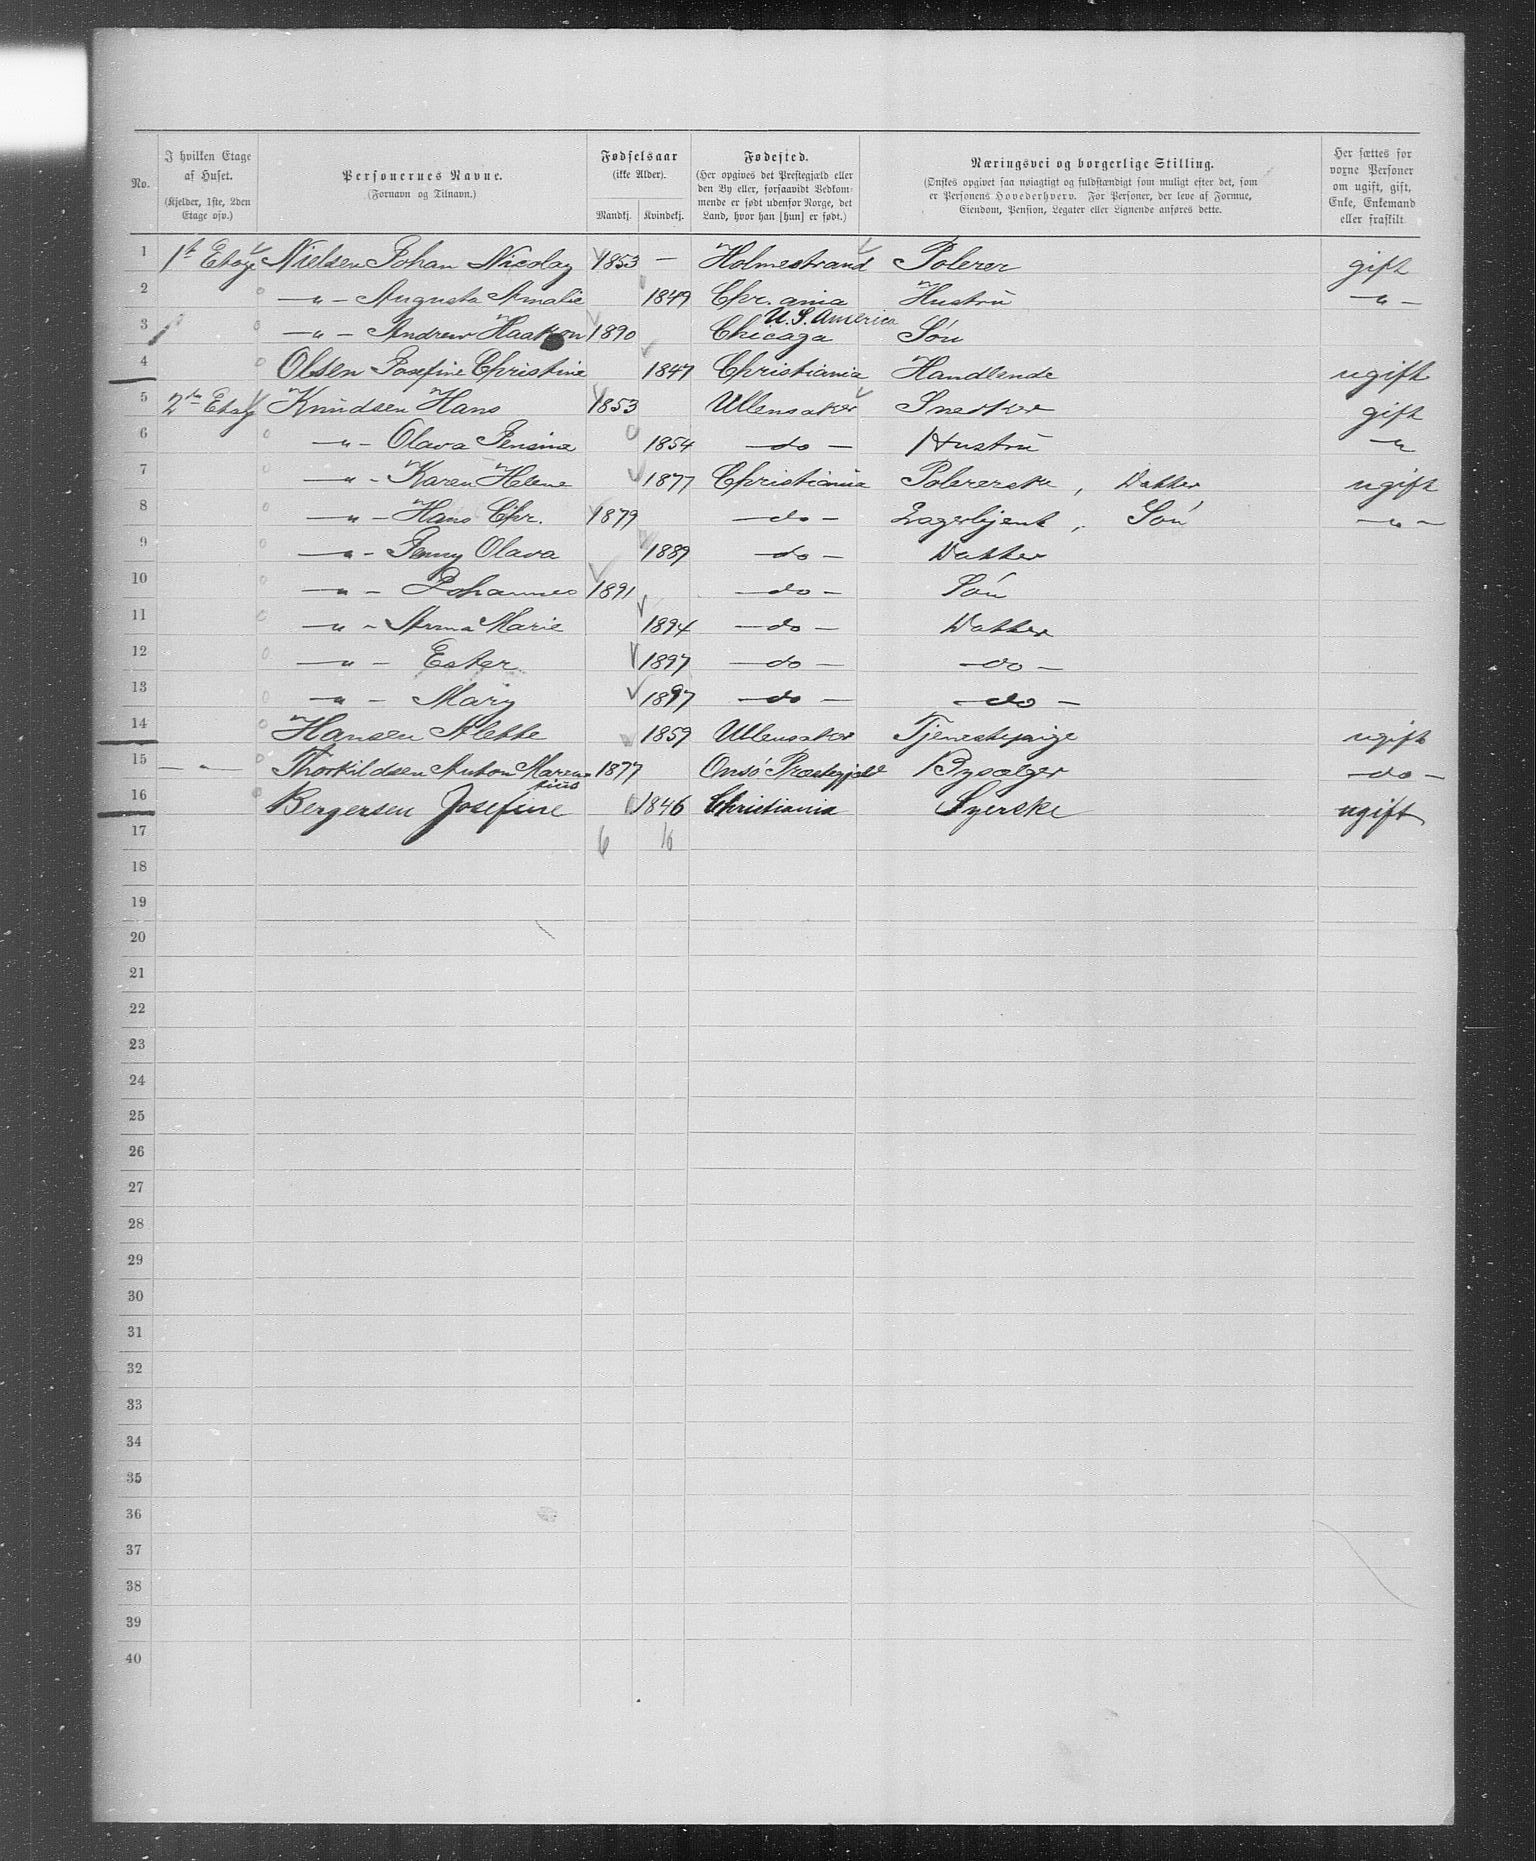 No.
I hvilken Etage af Huset. (Kjelder, 1ste, 2den Etage osv.)
Personernes Navne. (Fornavn og Tilnavn.)
Fødselsaar (ikke Alder). Mandkj. Kvindekj.
Fødested. (Her opgives det Prestegjæld eller den By eller, forsaavidt Vedkommende er født udenfor Norge, det Land, hvor han [hun] er født.)
Næringsvei og borgerlige Stilling. (Ønskes opgivet saa nøiagtigt og fuldstændigt som muligt efter det, som er Personens Hovederhverv. For Personer, der leve af Formue, Eiendom, Pension, Legater eller Lignende anføres dette.
Her sættes for voxne Personer om ugift, gift, Enke, Enkemand eller fraskilt
1 1ste Etage Nielsen Johan Nicolay 1853 — Holmestrand Polerer gift
2 —"— Augusta Amalie 1849 Chr.ania Hustru —"—
3 —"— Andrew Haakon 1890 Chicago U.S. America Søn
4 Olsen Josefine Christine 1847 Christiania Handlende ugift
5 2den Etage Knudsen Hans 1853 Ullensaker Snedker gift
6 —"— Olava Jensine 1854 —do— Hustru "
7 —"— Karen Helene 1877 Christiania Polererske, Datter ugift
8 —"— Hans Chr. 1879 —do— Lagerbjent, Søn —"—
9 —"— Jenny Olava 1889 —do— Datter
10 —"— Johannes 1891 —do— Søn
11 —"— Anna Marie 1894 —do— Datter
12 —"— Ester 1897 —do— —do—
13 —"— Mary 1897 —do— —do—
14 Hansen Alette 1859 Ullensaker Tjenestepige ugift
15 —"— Thorkildsen Anton Marensius 1877 Onsø Præstegjæld Bysælger —do—
16 Bergersen Josefine 1846 Christiania Syerske ugift
17 6 10
18
19
20
21
22
23
24
25
26
27
28
29
30
31
32
33
34
35
36
37
38
39
40